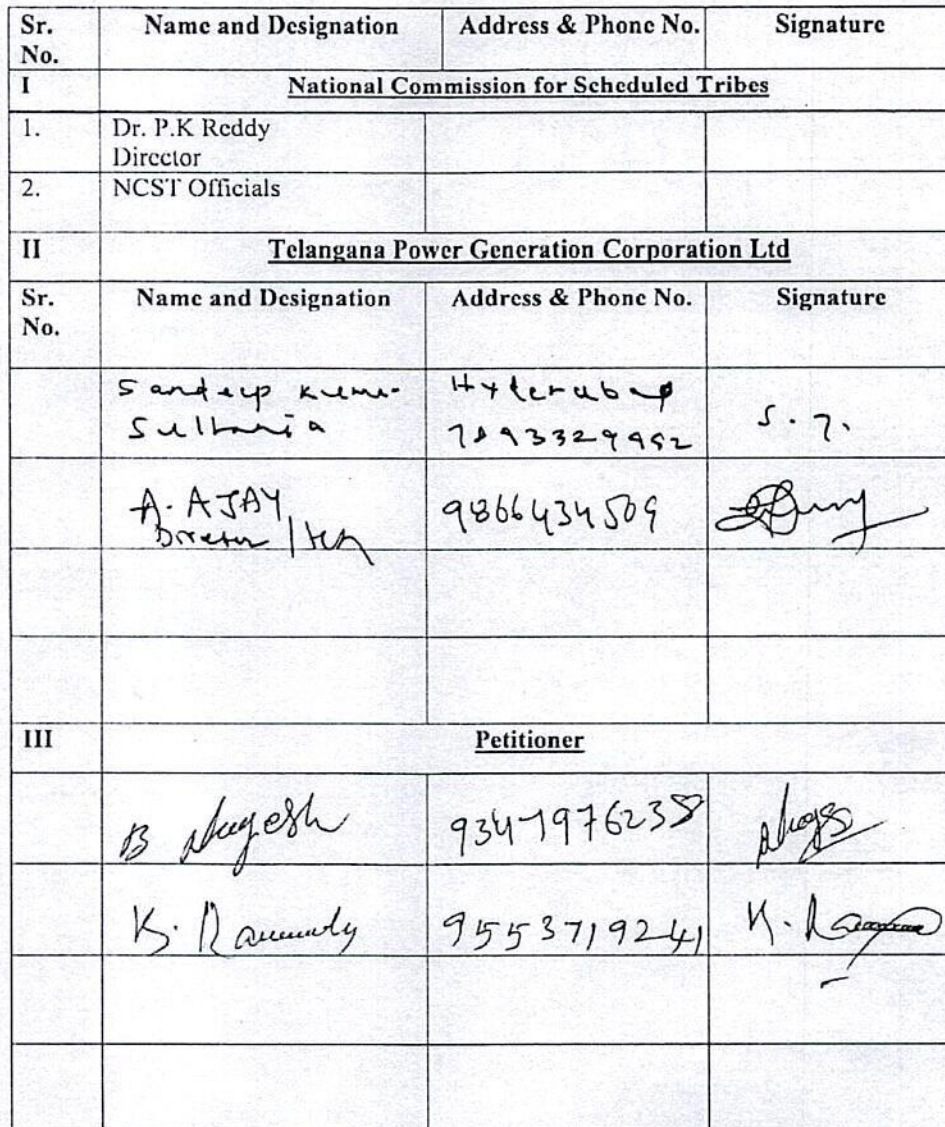 Sr. No. Name and Designation Address & Phone No. Signature
I National Commission for Scheduled Tribes
1. Dr. P.K Reddy
Director
2. NCST Officials
II Telangana Power Generation Corporation Ltd
Sr. No. Name and Designation Address & Phone No. Signature
Sandeep Kumar
Sultania
Hyderabad
7893329992
A. AJAY
Director
9866434509
III Petitioner
B
9347976238
K.
9553719241
K.